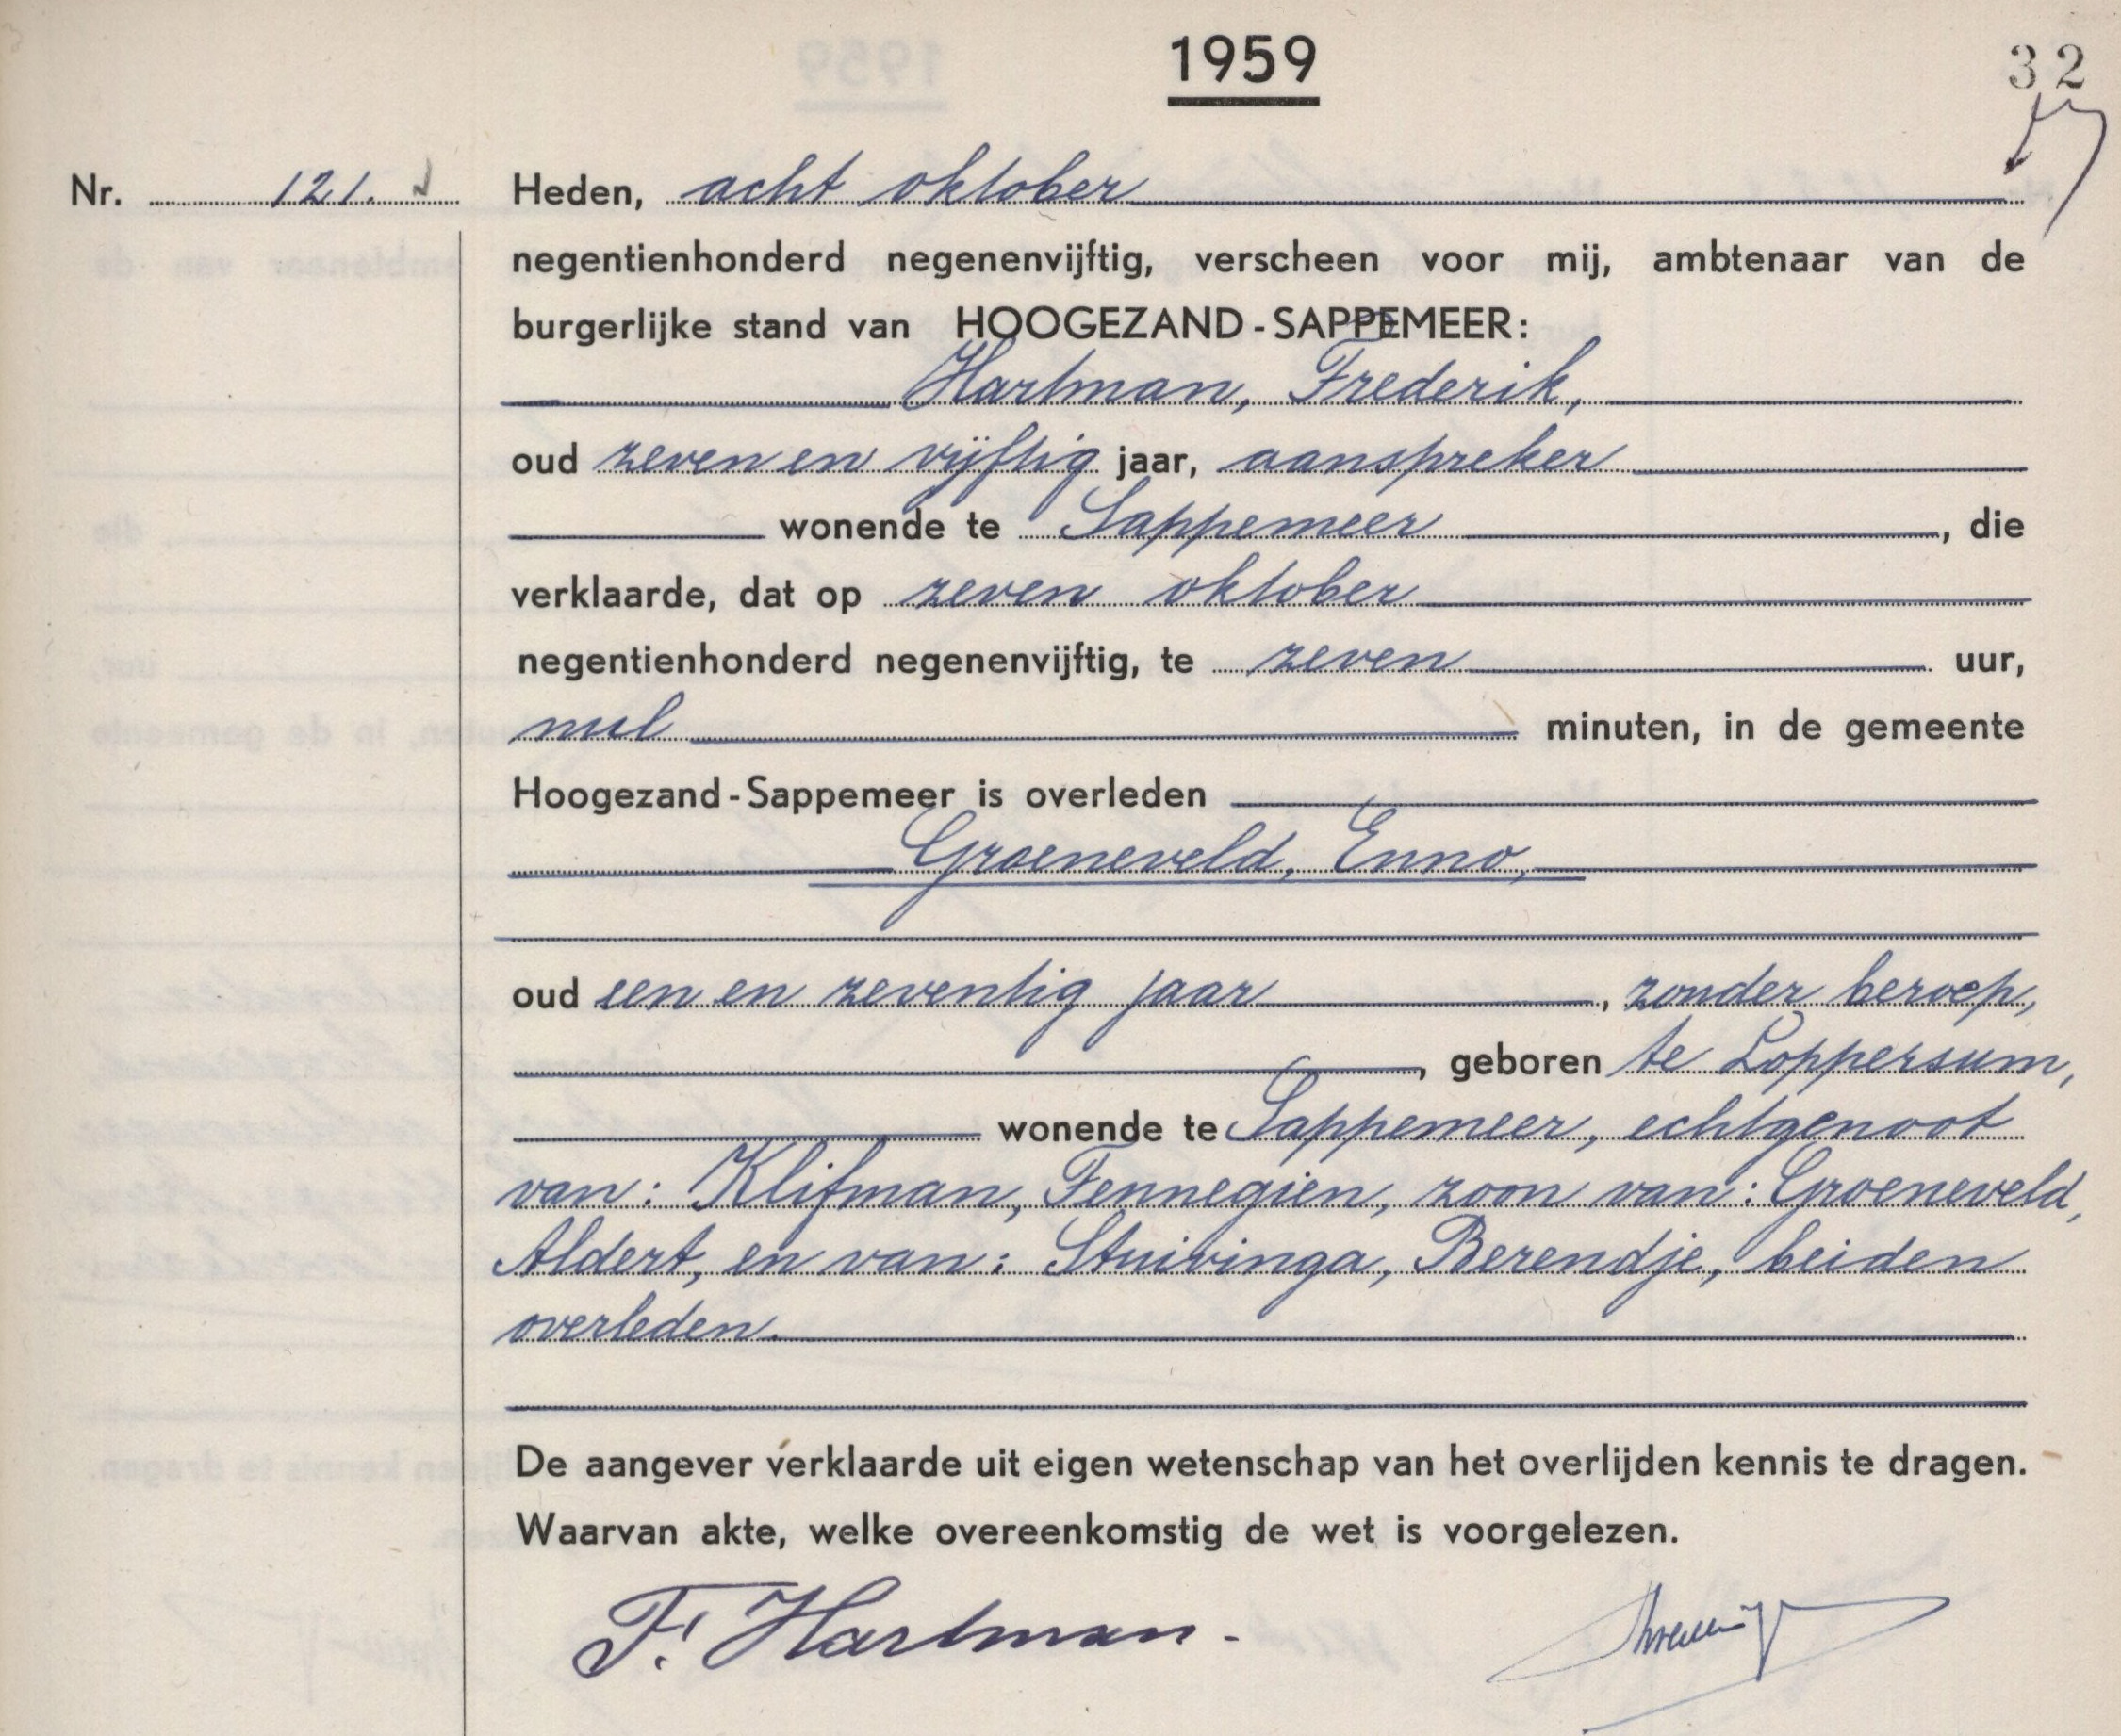 1959
32
Nr. 121. Heden, acht oktober
negentienhonderd negenenvijftig, verscheen voor mij, ambtenaar van de
burgerlijke stand van HOOGEZAND-SAPPEMEER:
Hartman, Frederik,
oud zeven en vijftig jaar, aanspreker
wonende te Sappemeer, die
verklaarde, dat op zeven oktober
negentienhonderd negenenvijftig, te zeven uur,
nul minuten, in de gemeente
Hoogezand-Sappemeer is overleden
Groeneveld, Enno,
oud een en zeventig jaar, zonder beroep,
, geboren te Loppersum,
wonende te Sappemeer, echtgenoot
van: Klifman, Fennegien, zoon van: Groeneveld,
Aldert, en van: Stuivinga, Berendje, beiden
overleden.
De aangever verklaarde uit eigen wetenschap van het overlijden kennis te dragen.
Waarvan akte, welke overeenkomstig de wet is voorgelezen.
F. Hartman.